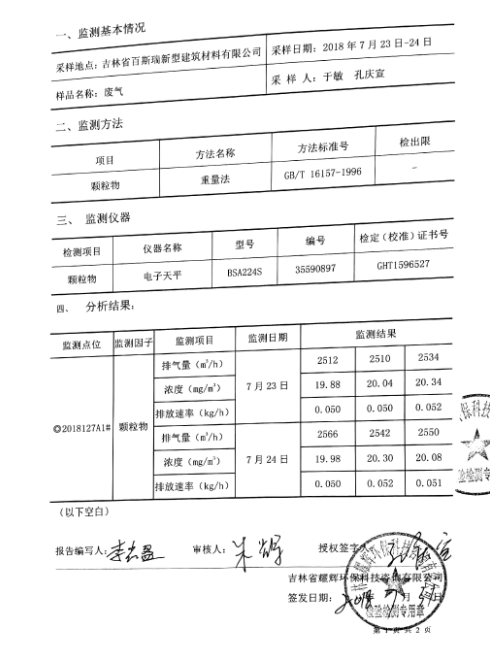 一、监测基本情况
采样地点：吉林省百斯瑞新型建筑材料有限公司 采样日期：2018 年 7 月 23 日-24 日
样品名称：废气 采 样 人：于敏 孔庆宣
二、监测方法
项目 方法名称 方法标准号 检出限
颗粒物 重量法 GB/T 16157-1996 -
三、 监测仪器
检测项目 仪器名称 型号 编号 检定（校准）证书号
颗粒物 电子天平 BSA224S 35590897 GHT1596527
四、 分析结果：
监测点位 监测因子 监测项目 监测日期 监测结果
◎2018127A1# 颗粒物
排气量（m³/h） 7 月 23 日 2512 2510 2534
浓度（mg/m³） 19.88 20.04 20.34
排放速率（kg/h） 0.050 0.050 0.052
排气量（m³/h） 7 月 24 日 2566 2542 2550
浓度（mg/m³） 19.98 20.30 20.08
排放速率（kg/h） 0.050 0.052 0.051
（以下空白）
报告编写人： 审核人： 授权签字人
吉林省耀辉环保科技咨询有限公司
签发日期： 年 月 日
检验检测专用章
第 1 页 共 2 页